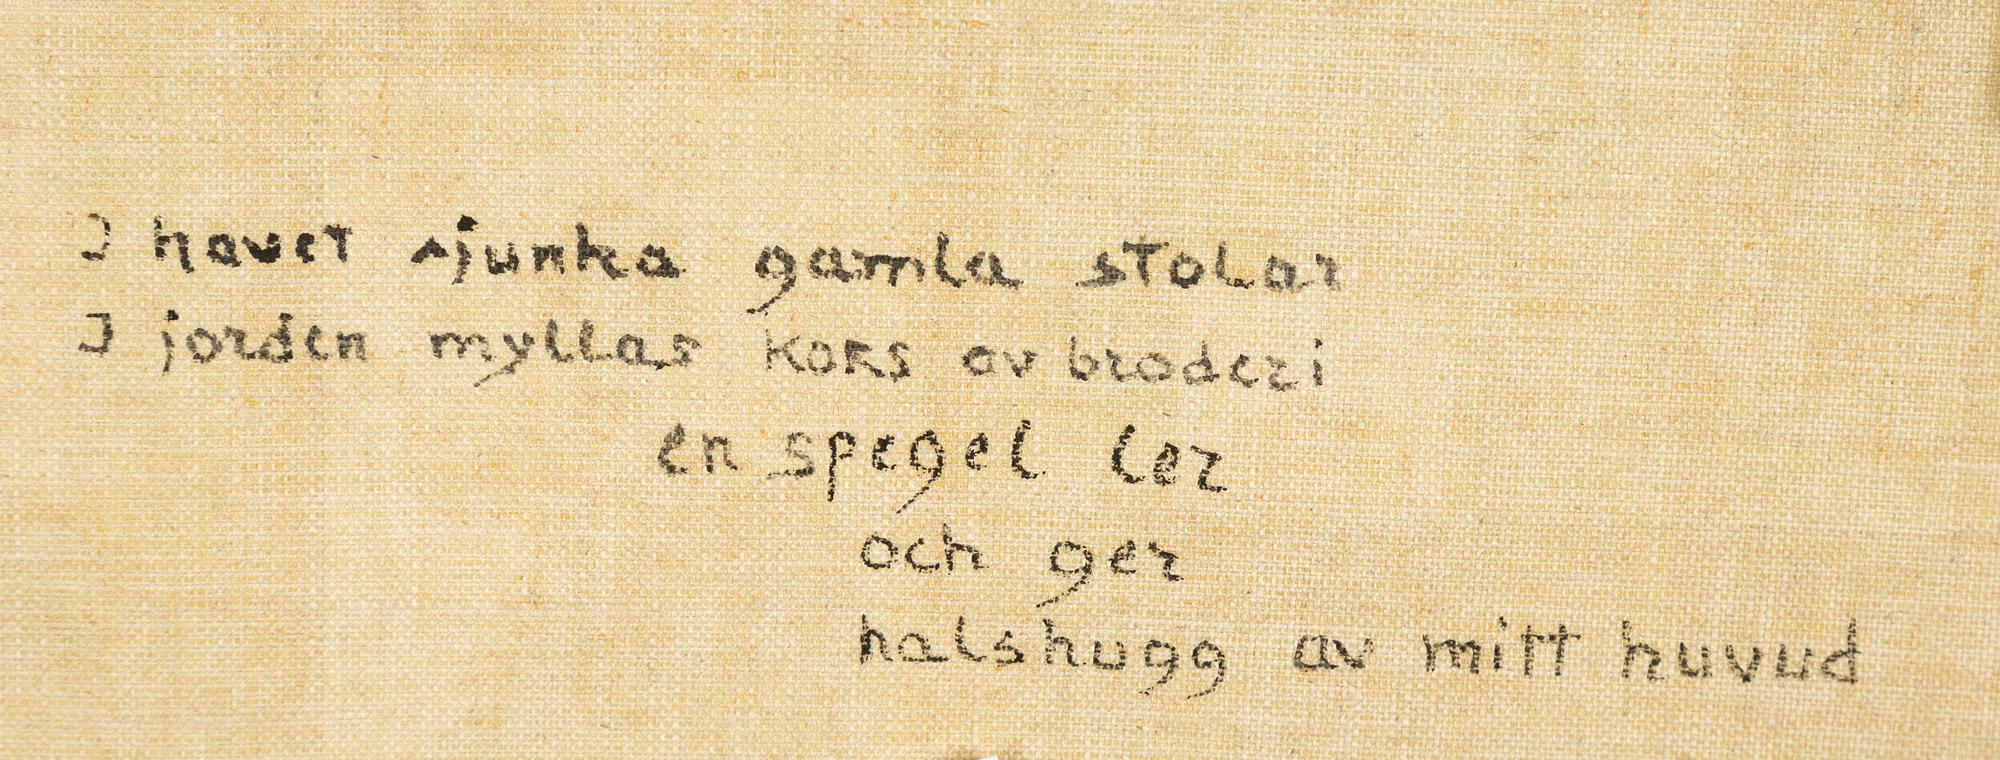 I havet sjunka gamla stolar
I jorden myllas koks av broderi
en spegel ler
och ger
halshugg av mitt huvud